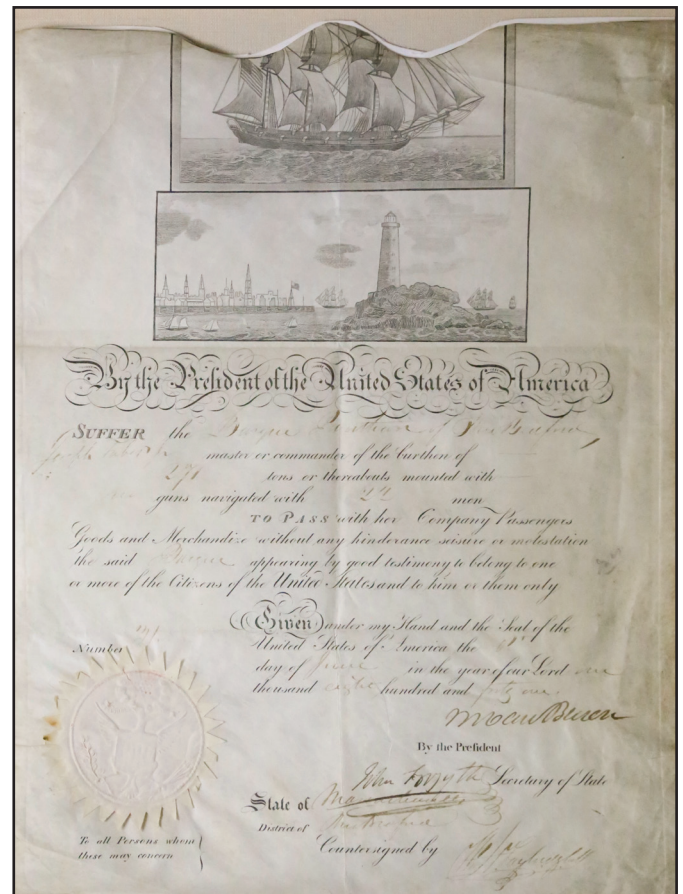 By the President of the United States of America
SUFFER the Barque
master or commander of the burthen of
271 tons or thereabouts mounted with
guns navigated with men
TO PASS with her Company Passengers
Goods and Merchandize without any hinderance seisure or molestation
the said Barque appearing by good testimony to belong to one
or more of the Citizens of the United States and to him or them only
Given under my Hand and the Seal of the
Number
United States of America the
day of June in the year of our Lord one
thousand eight hundred and forty one
M Van Buren
By the President
John Forsyth Secretary of State
State of Massachusetts
District of New Bedford
To all Persons whom
these may concern
Countersigned by